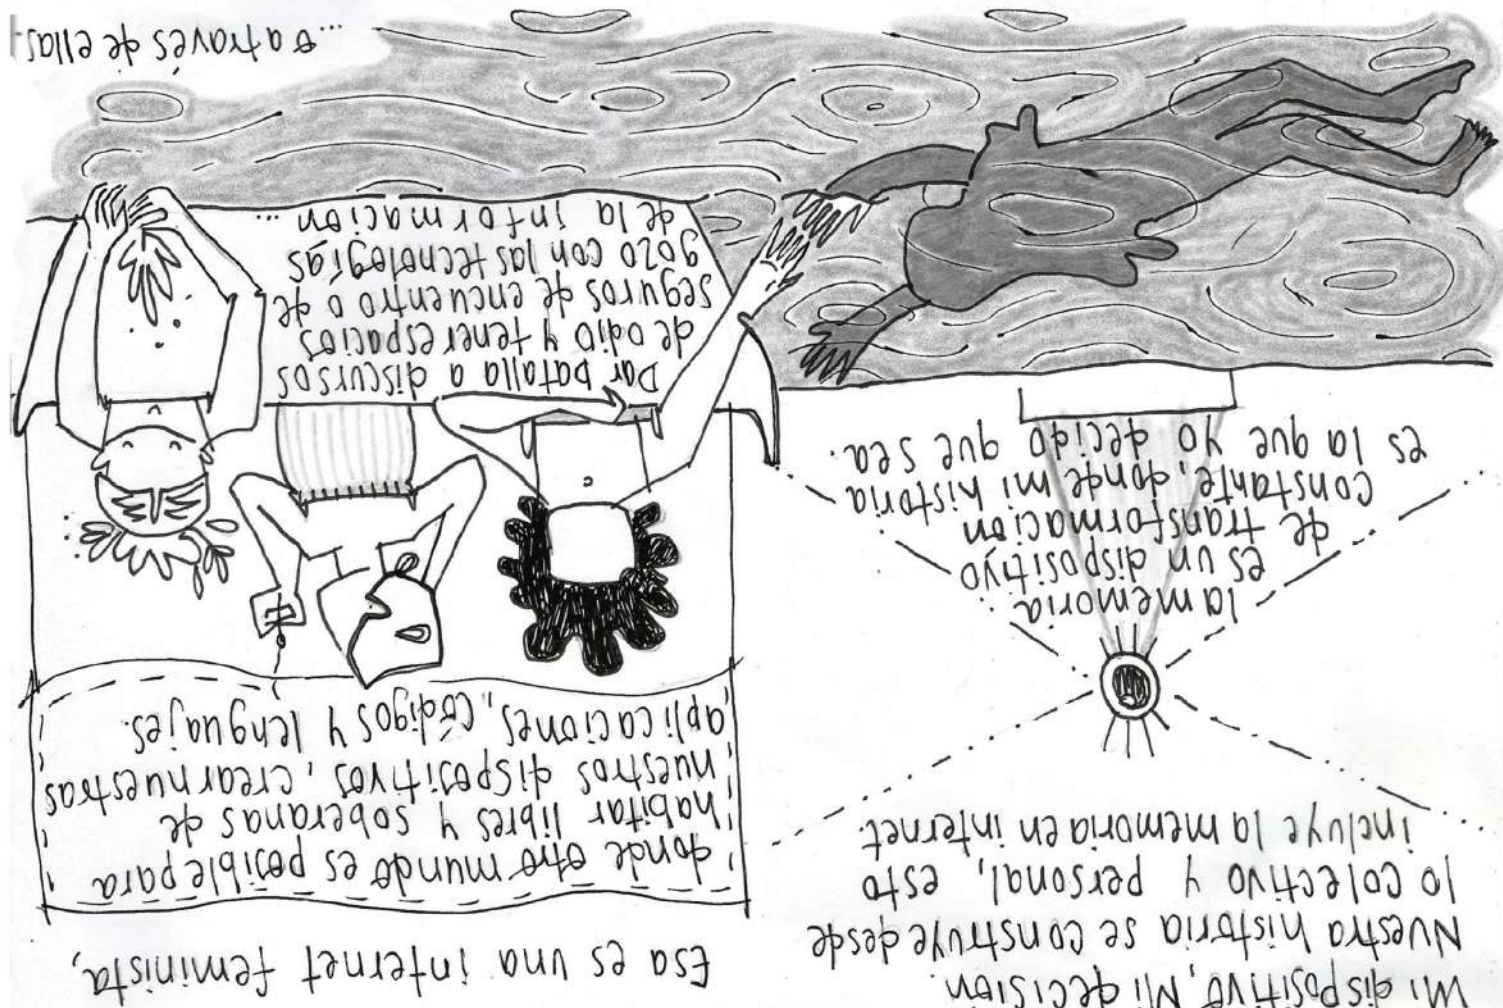 Mi dispositivo, Mi decisión.
Nuestra historia se construye desde
lo colectivo y personal, esto
incluye la memoria en internet.
la memoria
es un dispositivo
de transformación
constante, donde mi historia
es la que yo decido que sea.
Esa es una internet feminista,
donde otro mundo es posible para
habitar libres y soberanas de
nuestros dispositivos, crear nuestras
aplicaciones, códigos y lenguajes.
Dar batalla a discursos
de odio y tener espacios
seguros de encuentro o de
gozo con las tecnologías
de la información ...
... o a través de ellas